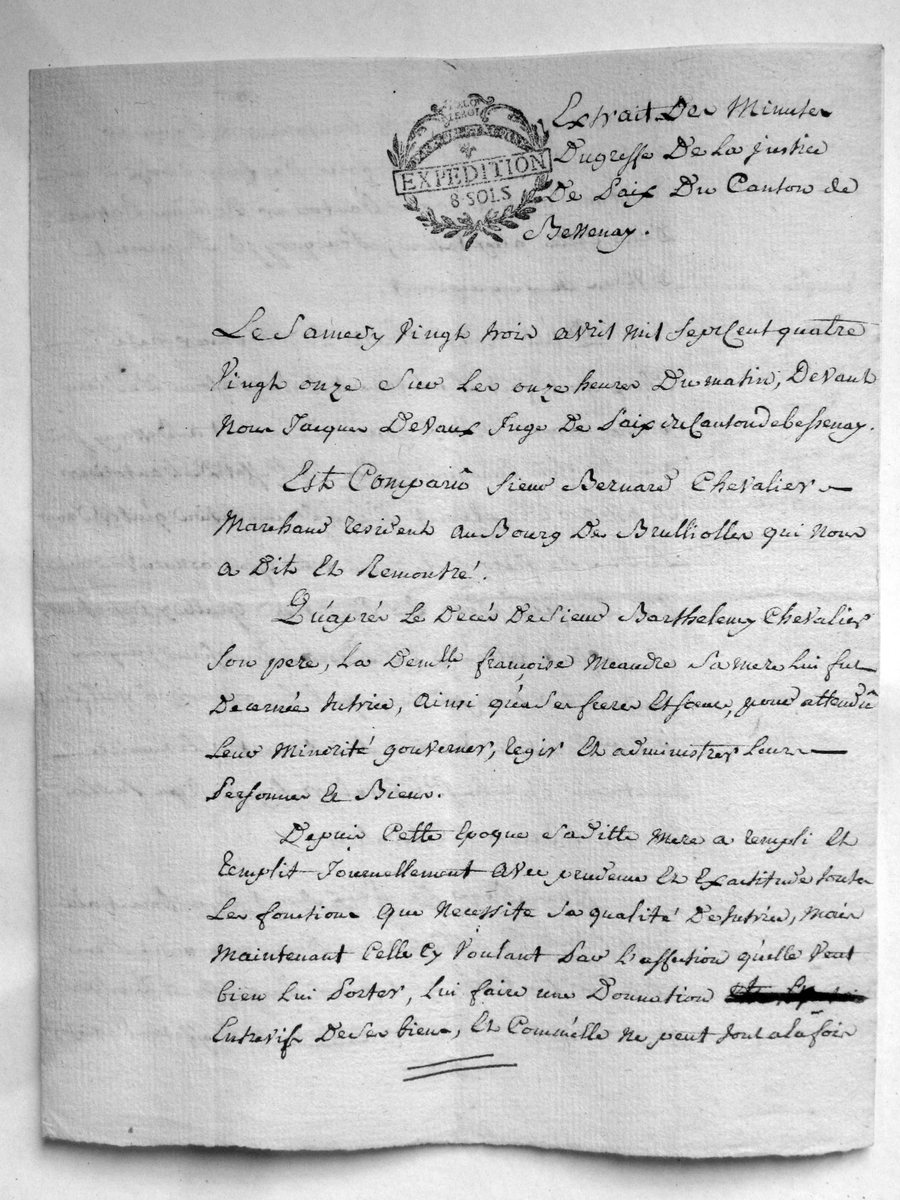 EXPEDITION
8·SOLS
Extrait Des Minutes
Dugreffe De La justice
De Paix Du Canton de
Bessenay.
Le Samedy Vingt trois avril mil SeptCent quatre
Vingt onze Sur Les onze heures Du matin, Devant
Nous Jacques Devaux Juge De Paix du CantonDebessenay.
Est Comparû Sieur Bernard Chevalier
Marchand resident au Bourg De Brulliolles qui Nous
a Dit Et Remontré.
Qu'aprés Le Decés DeSieur Barthelemy Chevalier
Son pere, La Demlle françoise Meandre Samere Lui fut
Decernée tutrice, ainsi qu'aSes freres Et sœurs, pour attendû
Leur Minorité gouverner, regir Et administrer Leurs
Personnes Et Biens.
Depuis Cette Epoque Saditte Mere a rempli Et
remplit Journellement avec prudence Et Exactitude toutes
Les fonctions Que Necessite Sa qualité De tutrice, Mais
Maintenant Celle Cy Voulant Par L'affection qu'elle Veut
bien Lui Porter, Lui faire une Donnation
Entrevifs DeSes biens, Et Comm'elle Ne peut tout alafois